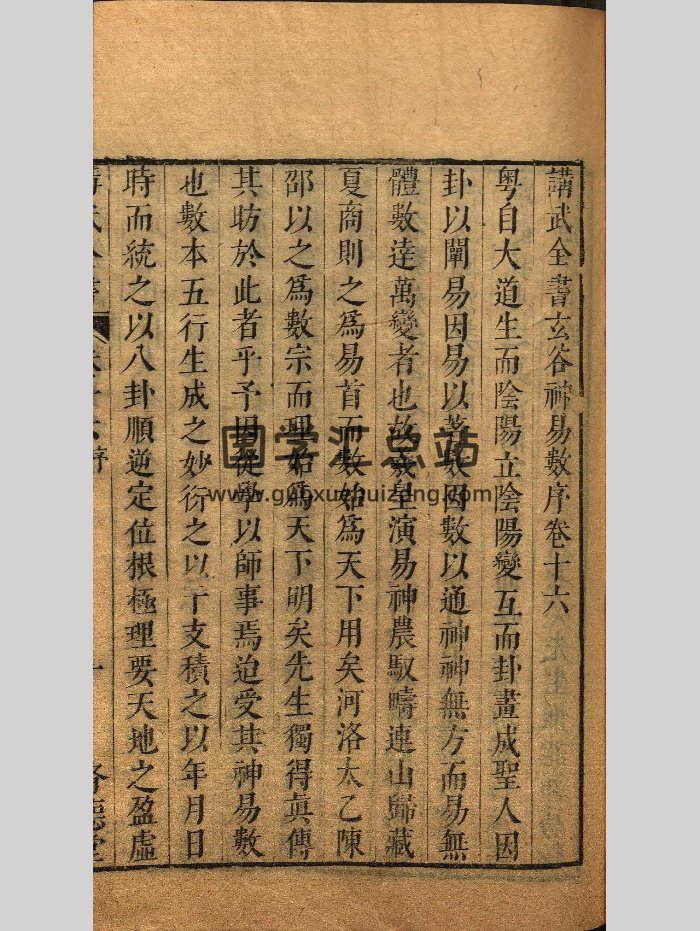 講武全書玄谷神易數序卷十六
粤自大道生而陰陽立陰陽變互而卦畫成聖人因
卦以闡易因易以著數因數以通神神無方而易無
體數逹萬變者也故羲皇演易神農馭疇連山歸藏
夏商則之爲易首而數始爲天下用矣河洛太乙陳
邵以之爲數宗而理始爲天下明矣先生獨得眞傳
其昉於此者乎予因從學以師事焉迨受其神易數
也數本五行生成之妙衍之以干支積之以年月日
時而統之以八卦順逆定位根極理要天地之盈虛
國学汇总站
www.guoxuehuizong.com